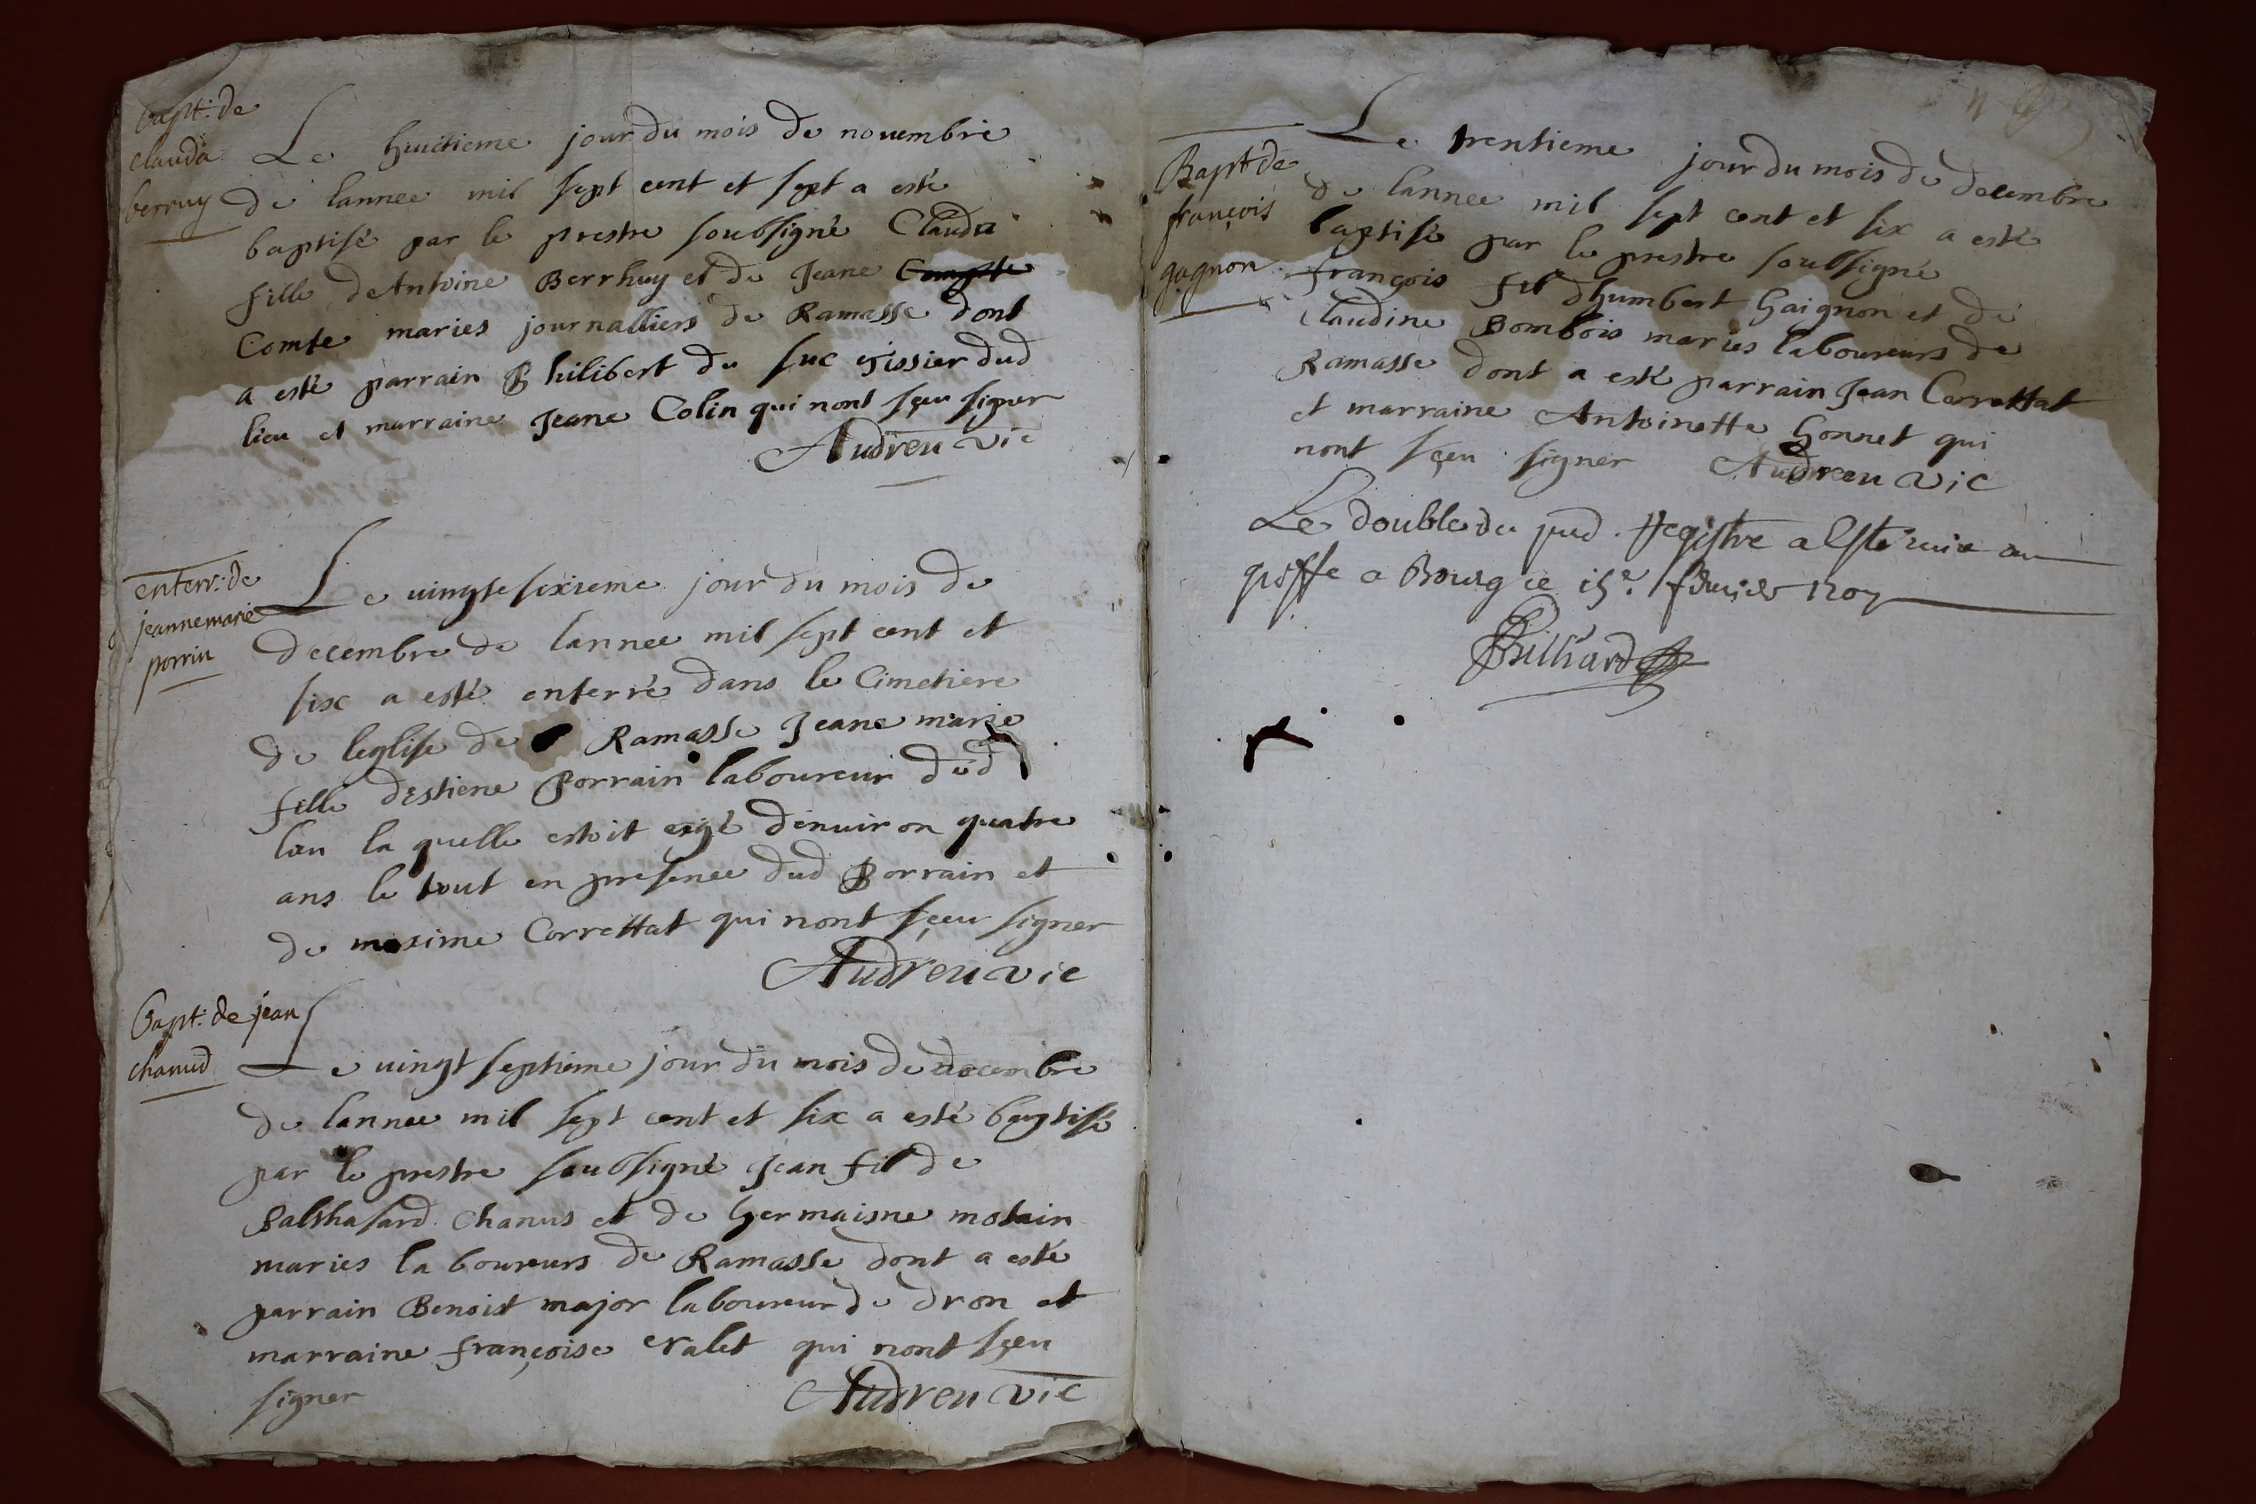 bapt: de
clauda
berruy
Le huictieme jour du mois de nouembre
de lannee mil sept cent et sept a esté
baptisé par le prestre soubsigné Clauda
fille de Antoine Berrhuy et de Jeane Compte
Comte maries journalliers de Ramasse dont
a esté parrain Philibert du suc tissier dud
lieu et marraine Jeane Colin qui nont sçeu signer
Audreu vic
enterr: de
jeanne marie
porrin
Le uingtesixieme jour du mois de
decembre de lannee mil sept cent et
six a esté enterré dans le Cimetiere
de leglise de Ramasse Jeane marie
fille destiene Porrain laboureur dud
lieu la quelle estoit eagé denuiron quatre
ans le tout en presence dud Porrain et
de maxime Correttat qui nont sçeu signer
Audreu vic
bapt: de jean
chanud
Le uingt septieme jour du mois de decembre
de lannee mil sept cent et six a esté baptisé
par le prestre soubsigné Jean fil de
Balthasard Chanus et de Germaisne molain
maries laboureurs de Ramasse dont a esté
parrain Benoist major laboureur de dron et
marraine françoise valet qui nont sçeu
signer
Audreu vic
Bapt de
françois
gagnon
Le trentieme jour du mois de decembre
de lannee mil sept cent et six a esté
baptisé par le prestre soubsigné
françois fil dhumbert Gaignon et de
Claudine Bombois maries laboureurs de
Ramasse dont a esté parrain Jean Correttat
et marraine Antoinette Gonnet qui
nont sçeu signer Audreu vic
Le double du pnd. Registre a Esté mis au
greffe a Bourg ce 15e. feburier 1707
Billiard